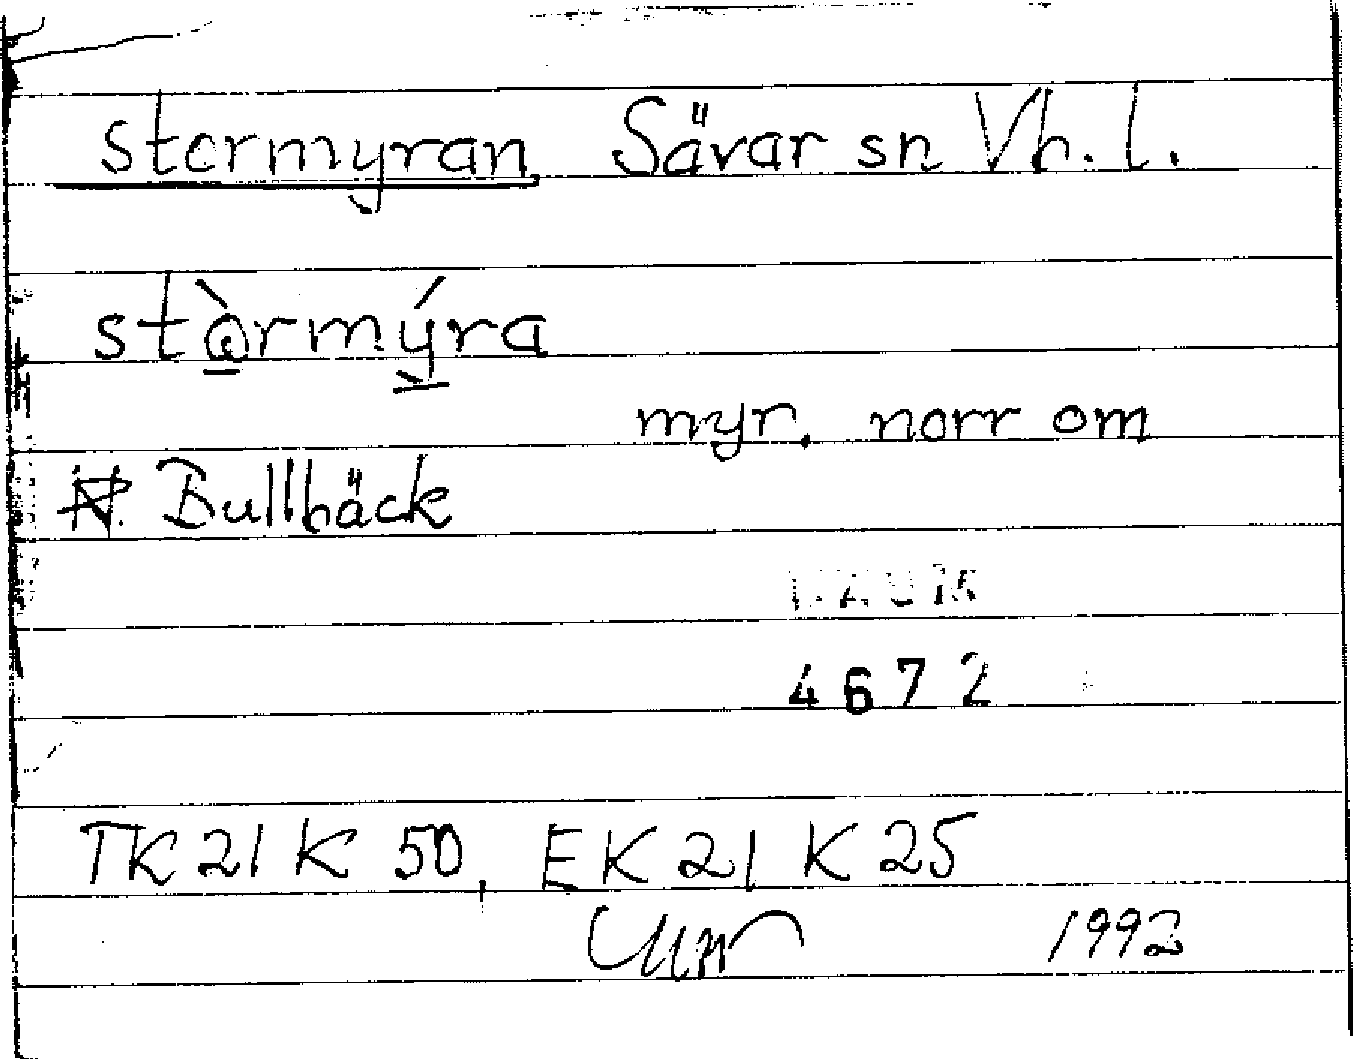 stormyran Sävar sn Vb. l.
stòrmýra
myr. norr om
Bullbäck
4672
TK 21 K 50, EK 21 K 25
1992